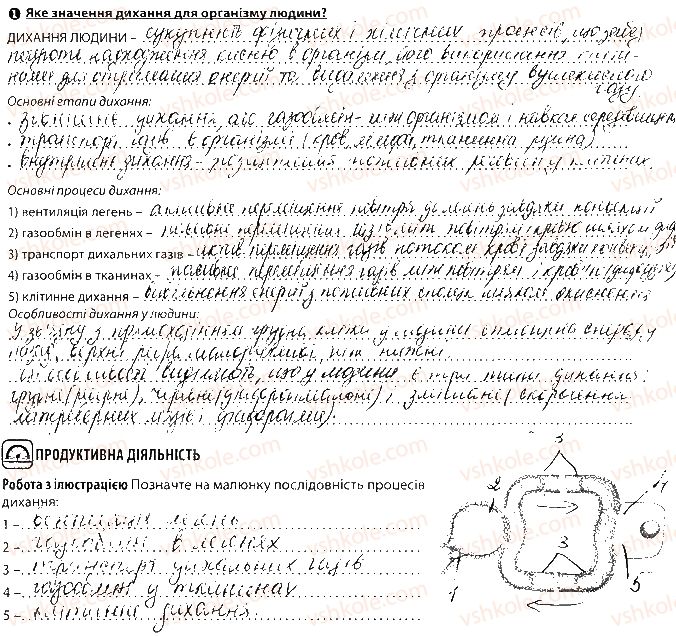 1 Яке значення дихання для організму людини?
ДИХАННЯ ЛЮДИНИ – сукупність фізичних і хімічних процесів, що забез
печують надходження кисню в організм, його використання кліти-
нами для отримання енергії та видалення з організму вуглекислого
газу
Основні етапи дихання:
• зовнішнє дихання, або газообмін між організмом і навкол. середовищем
• транспорт газів в організмі (кров, лімфа, тканинна рідина)
• внутрішнє дихання - розщеплення поживних речовин у клітинах
Основні процеси дихання:
1) вентиляція легень – активне переміщення повітря до легень завдяки
2) газообмін в легенях – пасивне переміщення газів між повітрям і кров'ю шляхом
3) транспорт дихальних газів – актив. переміщення газів потоком крові завдяки
4) газообмін в тканинах – пасивне переміщення газів між і кров'ю (дифузія)
5) клітинне дихання – вивільнення енергії з поживних сполук шляхом окиснення
Особливості дихання у людини:
У зв'язку з прямоходінням грудна клітка у людини сплющена спереду
назад, верхні ребра малорухливі, ніж нижні.
Особливості вид, що у людини є три типи дихання:
грудне (реберне), черевне (діафрагмальне) і змішане (скорочення
міжреберних м'язів і діафрагми).
ПРОДУКТИВНА ДІЯЛЬНІСТЬ
Робота з ілюстрацією Позначте на малюнку послідовність процесів
дихання:
1 – вентиляція легень
2 – газообмін в легенях
3 – транспорт дихальних газів
4 – газообмін у тканинах
5 – клітинне дихання
3
2
4
3
1
5
vshkole.com